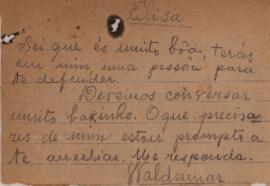 Elisa
Sei que és muito bôa, terás
em mim uma pessôa para
te defender.
Devemos conversar
muito baxinho. O que precisa
res de mim estou prompto a
te auxiliar. Me responda.
Waldemar